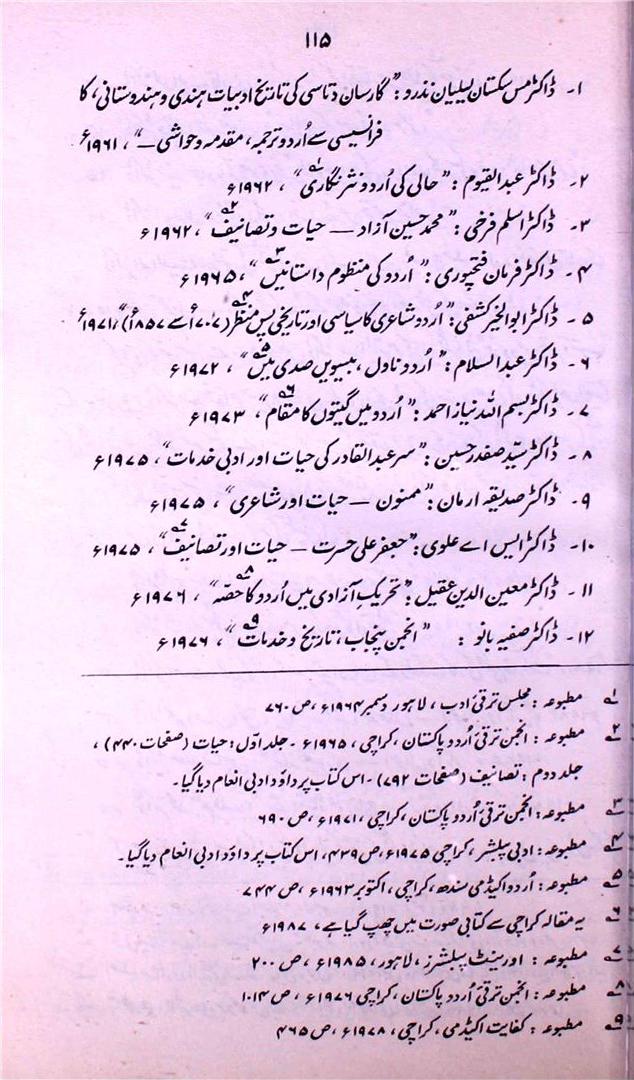 ۱۱۵
۱۔ ڈاکٹر مس سکستان لیلیان نذرو : "گارساں دتاسی کی تاریخ ادبیات ہندی و ہندوستانی، کا
فرانسیسی سے اُردو ترجمہ، مقدمہ و حواشی —"، ۱۹۶۱ء
۲۔ ڈاکٹر عبدالقیوم : "حالی کی اُردو نثر نگاری"۱؎، ۱۹۶۲ء
۳۔ ڈاکٹر اسلم فرخی : "محمد حسین آزاد — حیات و تصانیف"۲؎، ۱۹۶۲ء
۴۔ ڈاکٹر فرمان فتحپوری : "اُردو کی منظوم داستانیں"۳؎، ۱۹۶۵ء
۵۔ ڈاکٹر ابوالخیر کشفی : "اُردو شاعری کا سیاسی اور تاریخی پس منظر۴؎ (۱۷۰۷ء سے ۱۸۵۷ء)"، ۱۹۷۱ء
۶۔ ڈاکٹر عبدالسلام : "اُردو ناول، بیسویں صدی میں"۵؎، ۱۹۷۲ء
۷۔ ڈاکٹر بسم اللہ نیاز احمد : "اُردو میں گیتوں کا مقام"۶؎، ۱۹۷۳ء
۸۔ ڈاکٹر سیّد صفدر حسین : "سر عبدالقادر کی حیات اور ادبی خدمات"، ۱۹۷۵ء
۹۔ ڈاکٹر صدیقہ ارمان : "ممنون — حیات اور شاعری"، ۱۹۷۵ء
۱۰۔ ڈاکٹر ایس اے علوی : "جعفر علی حسرت — حیات اور تصانیف"۷؎، ۱۹۷۵ء
۱۱۔ ڈاکٹر معین الدین عقیل : "تحریکِ آزادی میں اُردو کا حصّہ"۸؎، ۱۹۷۶ء
۱۲۔ ڈاکٹر صفیہ بانو : "انجمن پنجاب، تاریخ و خدمات"۹؎، ۱۹۷۶ء
۱؎ مطبوعہ : مجلس ترقیٔ ادب، لاہور دسمبر ۱۹۶۴ء، ص ۷۶۰
۲؎ مطبوعہ : انجمن ترقیٔ اُردو پاکستان، کراچی، ۱۹۶۵ء ۔ جلد اوّل : حیات (صفحات ۴۴۰)،
جلد دوم : تصانیف (صفحات ۷۹۲) ۔ اس کتاب پر داؤد ادبی انعام دیا گیا۔
۳؎ مطبوعہ : انجمن ترقیٔ اُردو پاکستان، کراچی، ۱۹۷۱ء، ص ۶۹۰
۴؎ مطبوعہ : ادبی پبلشر، کراچی ۱۹۷۵ء ص ۴۳۹، اس کتاب پر داؤد ادبی انعام دیا گیا۔
۵؎ مطبوعہ : اُردو اکیڈمی سندھ، کراچی، اکتوبر ۱۹۶۳ء، ص ۷۴۴
۶؎ یہ مقالہ کراچی سے کتابی صورت میں چھپ گیا ہے، ۱۹۸۷ء
۷؎ مطبوعہ : اورینٹ پبلشرز، لاہور، ۱۹۸۵ء، ص ۲۰۰
۸؎ مطبوعہ : انجمن ترقیٔ اُردو پاکستان، کراچی ۱۹۷۶ء، ص ۱۰۱۴
۹؎ مطبوعہ : کفایت اکیڈمی، کراچی، ۱۹۷۸ء، ص ۴۶۵